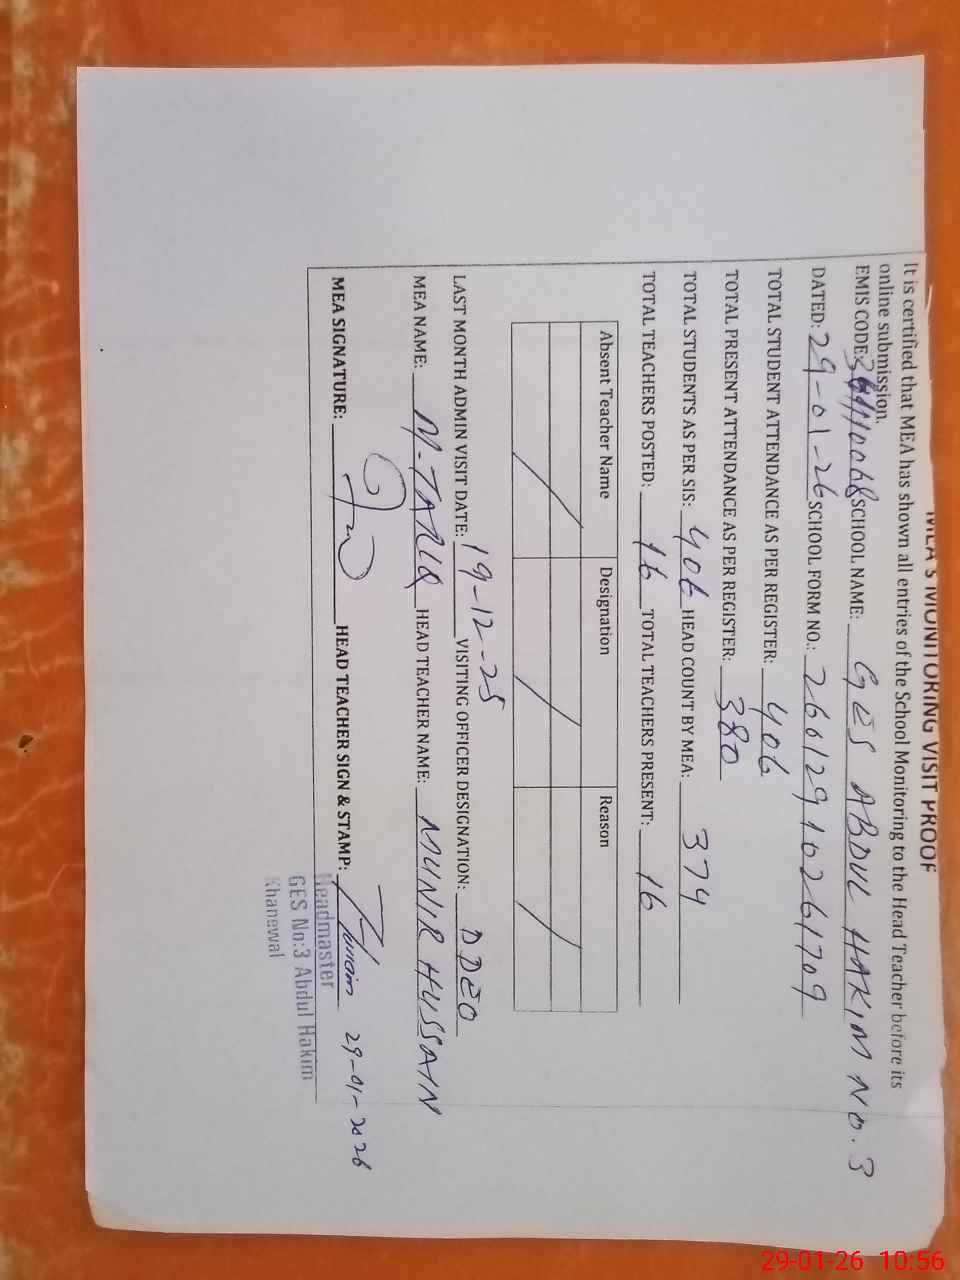 MEA'S MONITORING VISIT PROOF
It is certified that MEA has shown all entries of the School Monitoring to the Head Teacher before its
online submission.
EMIS CODE: SCHOOL NAME: GES ABDUL HAKIM NO. 3
DATED: 29-01-26 SCHOOL FORM NO.: 26612910261709
TOTAL STUDENT ATTENDANCE AS PER REGISTER: 406
TOTAL PRESENT ATTENDANCE AS PER REGISTER: 380
TOTAL STUDENTS AS PER SIS: 406 HEAD COUNT BY MEA: 374
TOTAL TEACHERS POSTED: 16 TOTAL TEACHERS PRESENT: 16
Absent Teacher Name Designation Reason
LAST MONTH ADMIN VISIT DATE: 19-12-25 VISITING OFFICER DESIGNATION: DDEO
MEA NAME: M. TARIQ HEAD TEACHER NAME: MUNIR HUSSAIN
MEA SIGNATURE: HEAD TEACHER SIGN & STAMP: 29-01-2026
Headmaster
GES No:3 Abdul Hakim
Khanewal
29-01-26 10:56